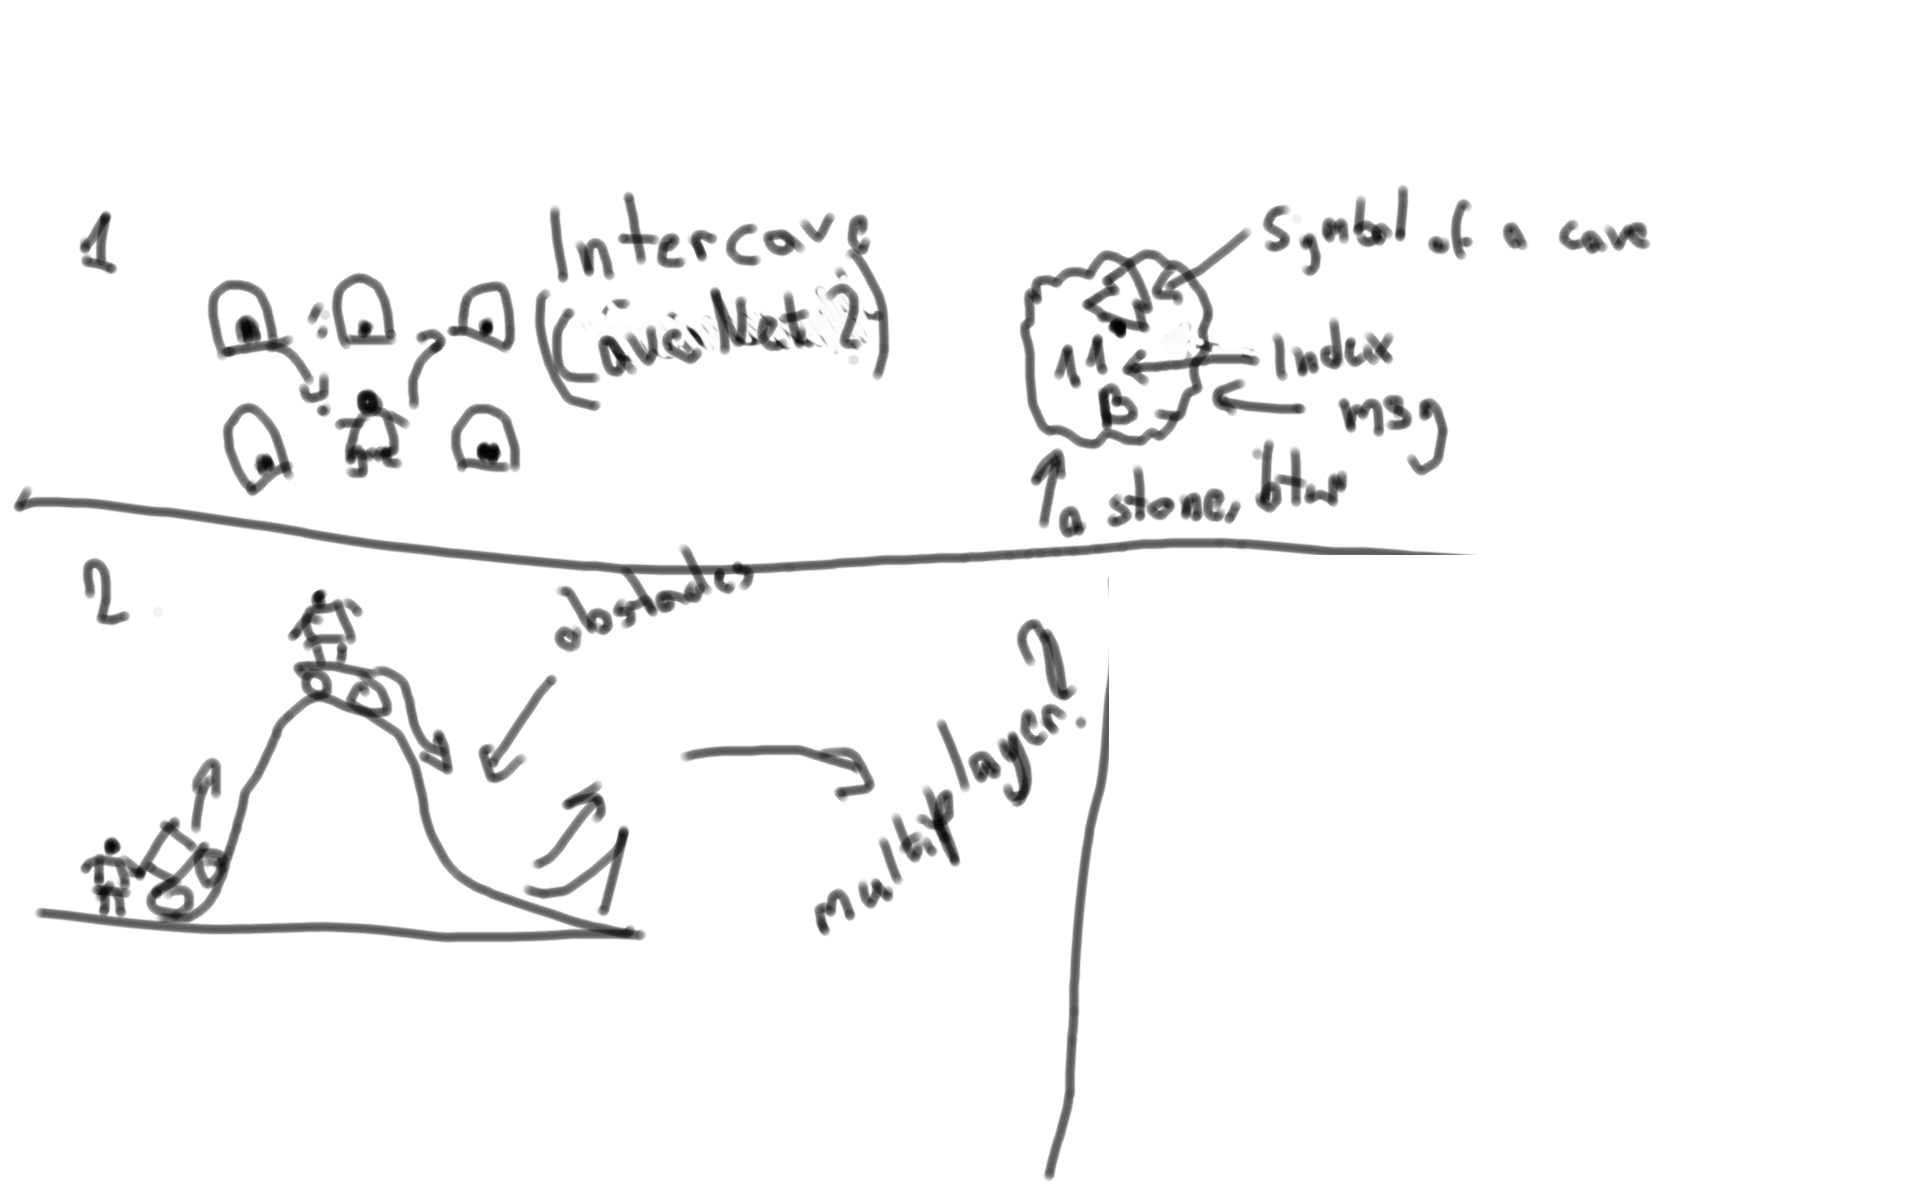 1
Intercave
(CaveNet?)
Symbol of a cave
11
Index
B
msg
a stone, btw
2
obstacles
multiplayer?